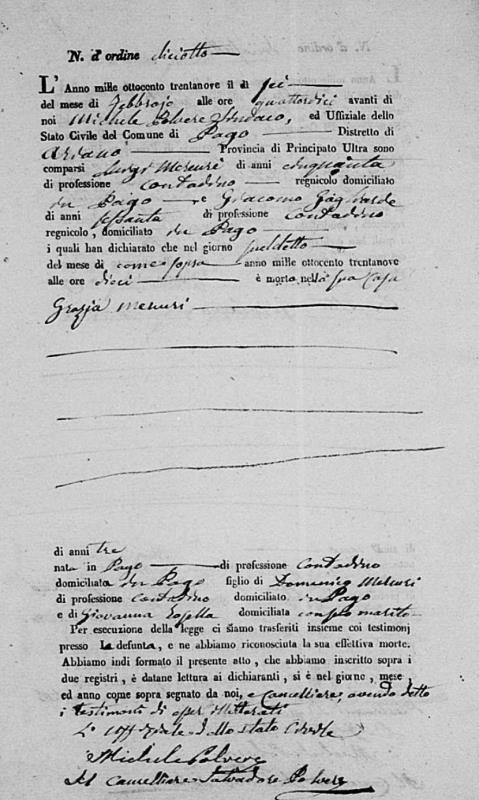 N. d'ordine diciotto
L' Anno mille ottocento trentanove il di sei
del mese di Febbrajo alle ore quattordici avanti di
noi Michele Polvere Sindaco, ed Uffiziale dello
Stato Civile del Comune di Pago Distretto di
Ariano Provincia di Principato Ultra sono
comparsi Luigi Mercuri di anni cinquanta
di professione Contadino regnicolo domiciliato
in Pago e Giacomo Gagliarde
di anni sessanta di professione Contadino
regnicolo, domiciliato in Pago
i quali han dichiarato che nel giorno suddetto
del mese di come sopra anno mille ottocento trentanove
alle ore dieci è morta nella sua Casa
Grazia Mercuri
di anni tre
nata in Pago di professione Contadino
domiciliata in Pago figlio di Domenico Mercuri
di professione Contadino domiciliato in Pago
e di Giovanna domiciliata con suo marito
Per esecuzione della legge ci siamo trasferiti insieme coi testimonj
presso la defunta, e ne abbiamo riconosciuta la sua effettiva morte.
Abbiamo indi formato il presente atto, che abbiamo inscritto sopra i
due registri, è datane lettura ai dichiaranti, si è nel giorno, mese
ed anno come sopra segnato da noi, e Cancelliere, avendo detto
i testimonj di esser illetterati
L'Uffiziale dello stato Civile
Michele Polvere
Il Cancelliere Salvadore Polvere